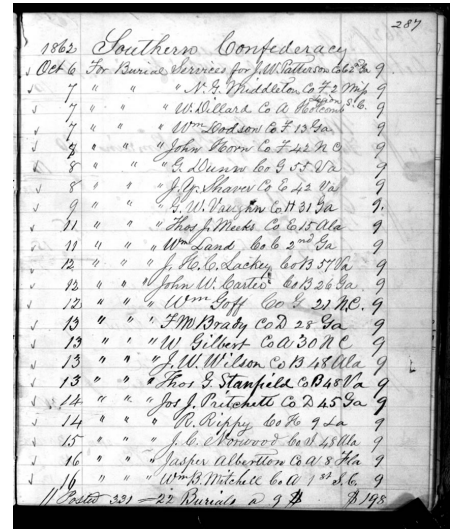 287
1862 Southern Confederacy
Oct 6 For Burial Services for J.W. Patterson Co C 2d Ga 9
7 " " " N. G. Middleton Co F 2 Mip 9
7 " " " W. Dillard Co A Holcomb Legion S.C. 9
7 " " " Wm Dodson Co F 13 Ga 9
7 " " " John Horn Co F 42 N C 9
8 " " " G. Dunn Co G 55 Va 9
8 " " " J. Y. Shaver Co C 42 Va 9
9 " " " G. W. Vaughn Co H 31 Ga 9.
11 " " " Thos J. Meeks Co E 15 Ala 9
11 " " " Wm Land Co C 2nd Ga 9
12 " " " J. H. C. Lackey Co B 57 Va 9
12 " " " John W. Carter Co B 26 Ga 9
12 " " " Wm Goff Co G 21 N.C. 9
13 " " " F M Brady Co D 28 Ga 9
13 " " " W Gilbert Co A 30 N C 9
13 " " " J. W. Wilson Co B 48 Ala 9
13 " " " Thos G. Stanfield Co B 48 Va 9
14 " " " Jos J. Pritchett Co D 45 Ga 9
14 " " " R. Rippy Co H 9 La 9
15 " " " J. C. Norwood Co I. 48 Ala 9
16 " " " Jasper Albertton Co A 8 Fla 9
16 " " " Wm B. Mitchell Co A 1st S. C. 9
// Posted 331 — 22 Burials a 9 $ $198